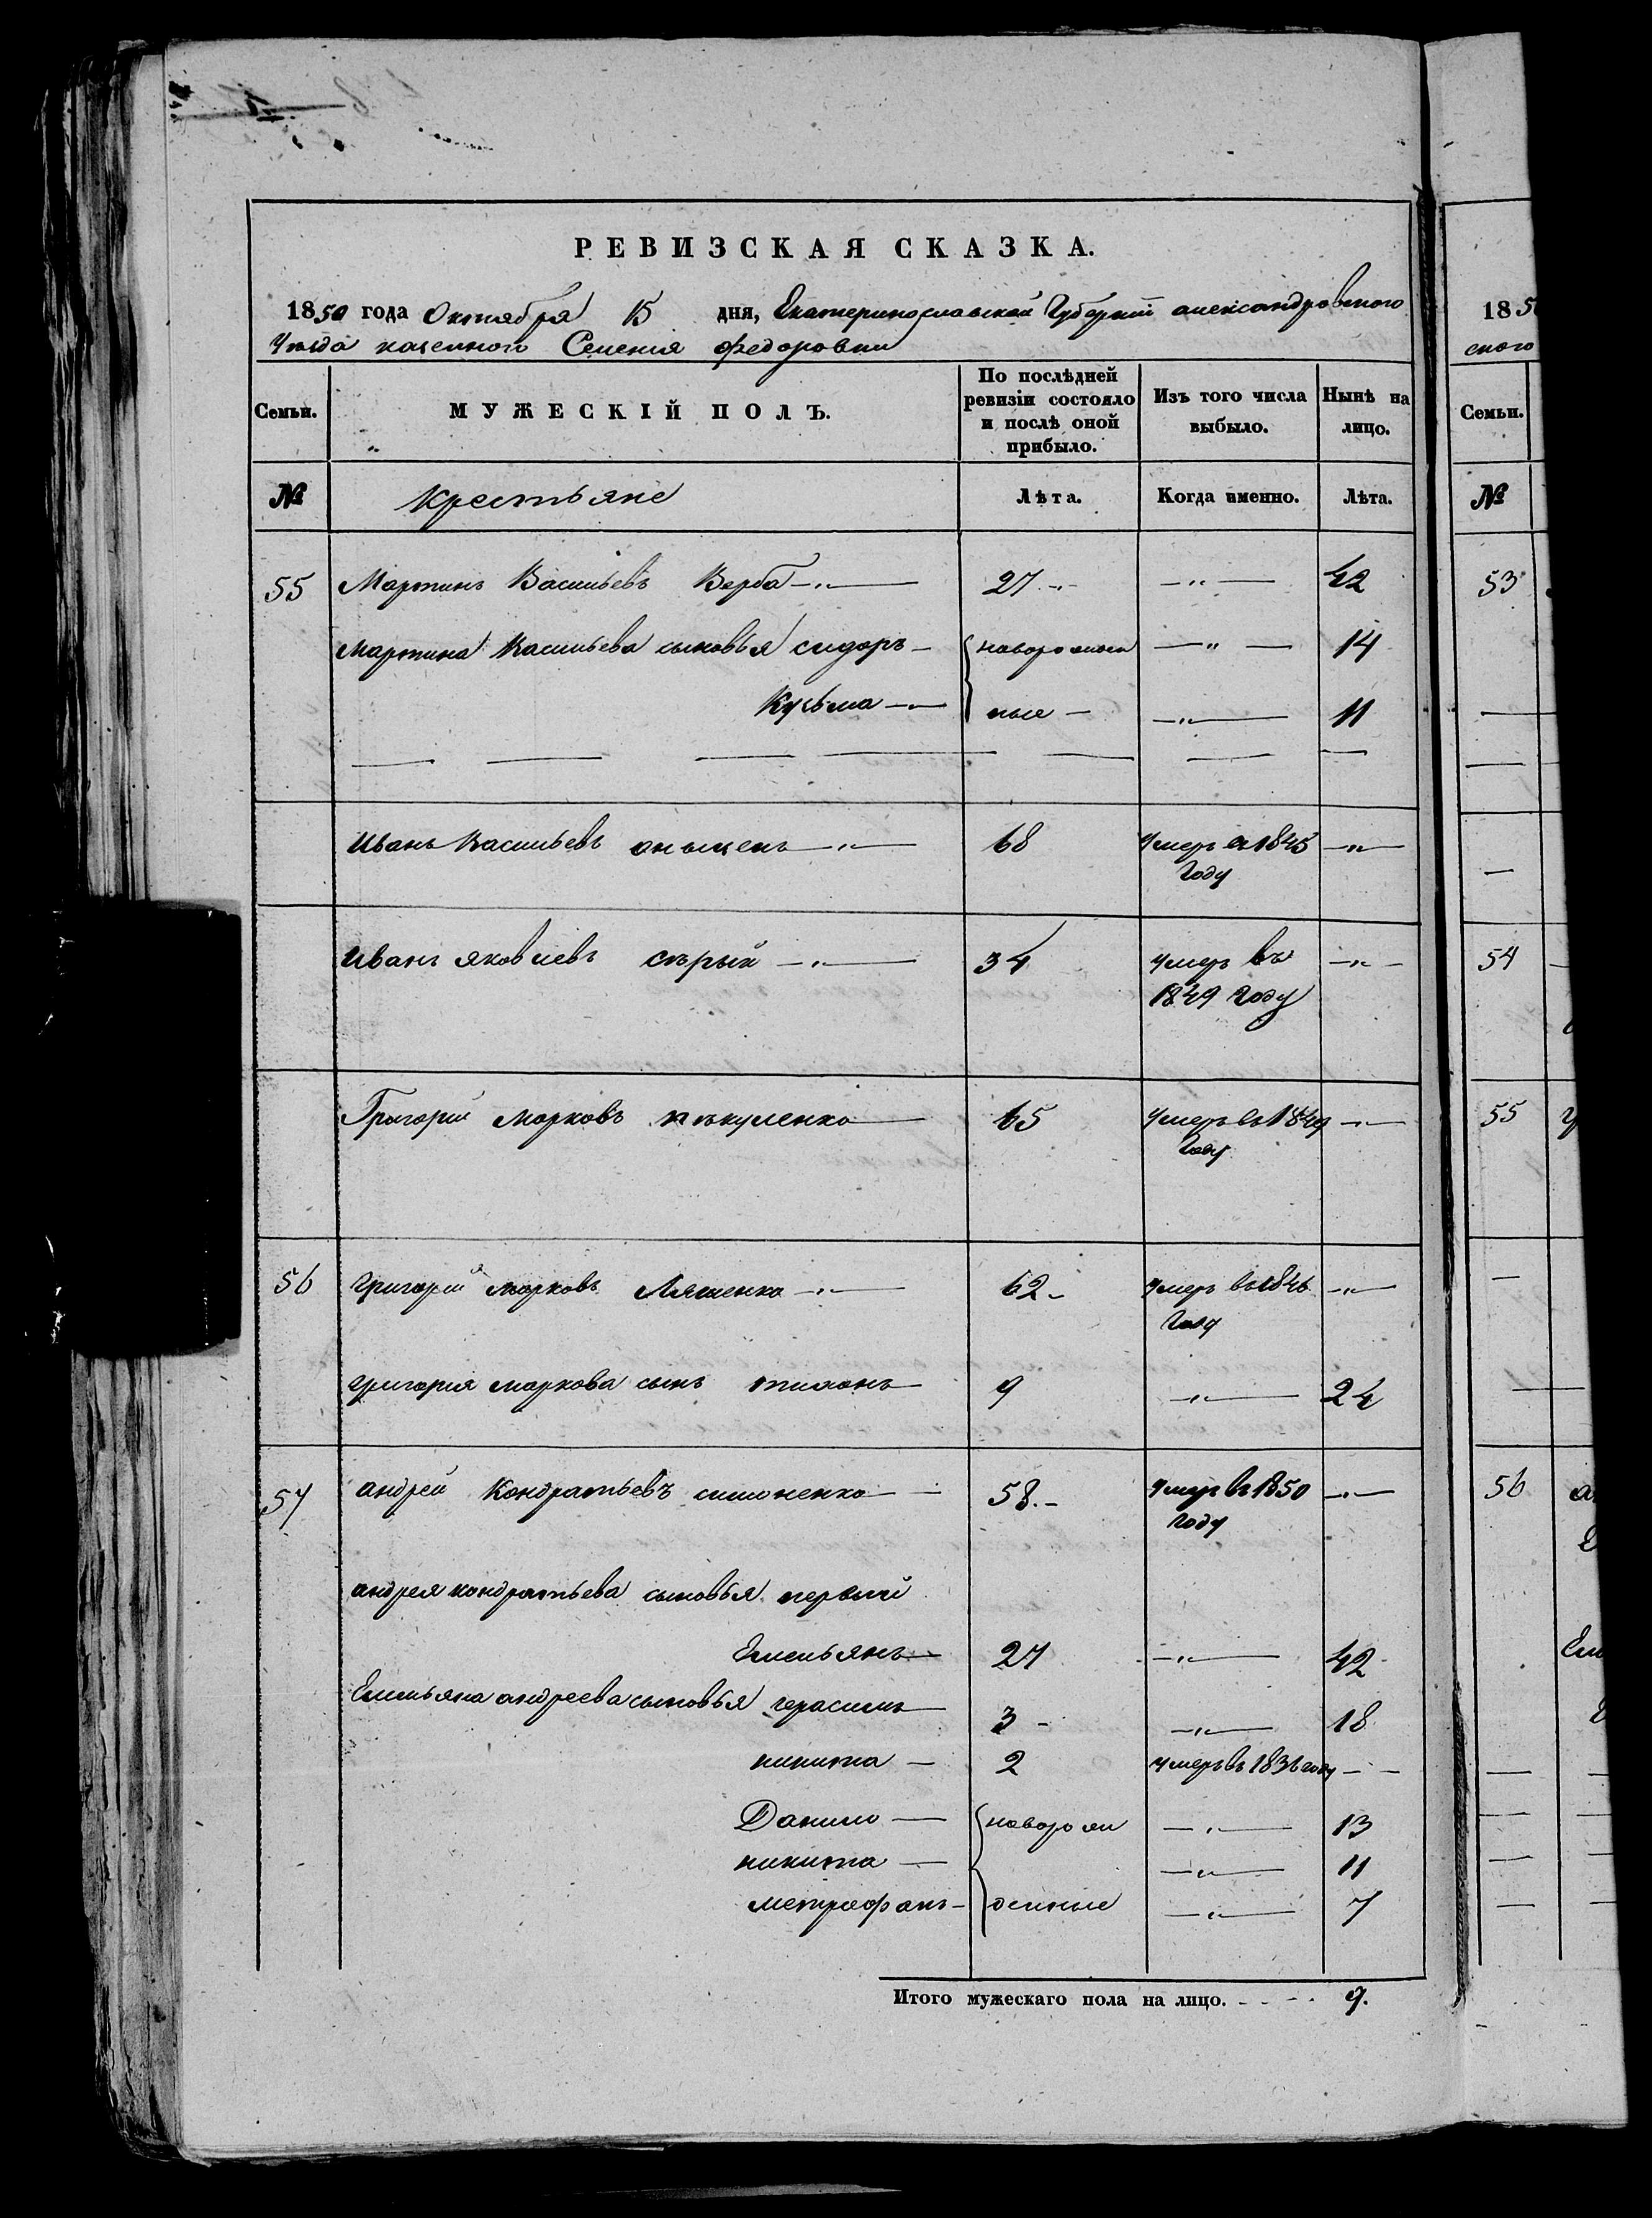 РЕВИЗСКАЯ СКАЗКА.
1850 года Октября 15 дня, Екатеринославской Губерніи александровского
Уезда казенного Селенія федоровки
Семьи. МУЖЕСКІЙ ПОЛЪ. По послѣдней ревизіи состояло и послѣ оной прибыло. Изъ того числа выбыло. Нынѣ на лицо.
№ крестьяне Лѣта. Когда именно. Лѣта.
55 Мартинъ Васильевъ Верба 27 42
Мартина Васильева сыновья сидоръ новорожден 14
Кузьма ные 11
Иванъ Васильевъ 68 умеръ въ 1845
году
Иванъ яковлевъ сѣрый 34 умеръ въ
1849 году
Григорій Марковъ 65 умеръ въ 1849
году
56 григорій марковъ Ляшенко 62 умеръ въ 1846
году
григорія маркова сынъ тихонъ 9 24
57 андрей Кондратьевъ симоненко 58 умеръ въ 1850
году
андрея кондратьева сыновья первый
Емельянъ 27 42
Емельяна андреева сыновья герасимъ 3 18
никита 2 умеръ въ 1836 году
Данило новорож 13
никита 11
метрофанъ денные 7
Итого мужескаго пола на лицо. 9.
185
ского
Семьи.
№
53
54
55
56